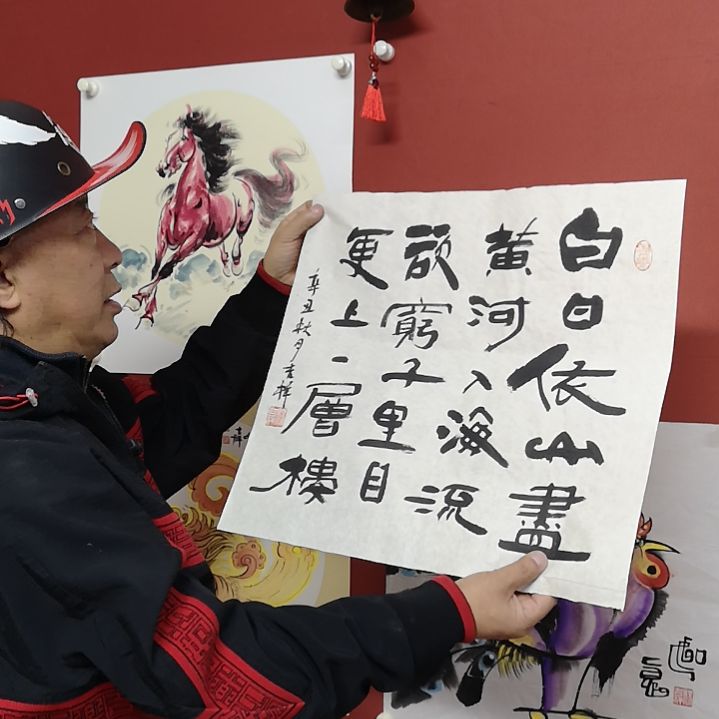 白日依山盡
黄河入海流
欲窮千里目
更上一層樓
辛丑秋月吉祥